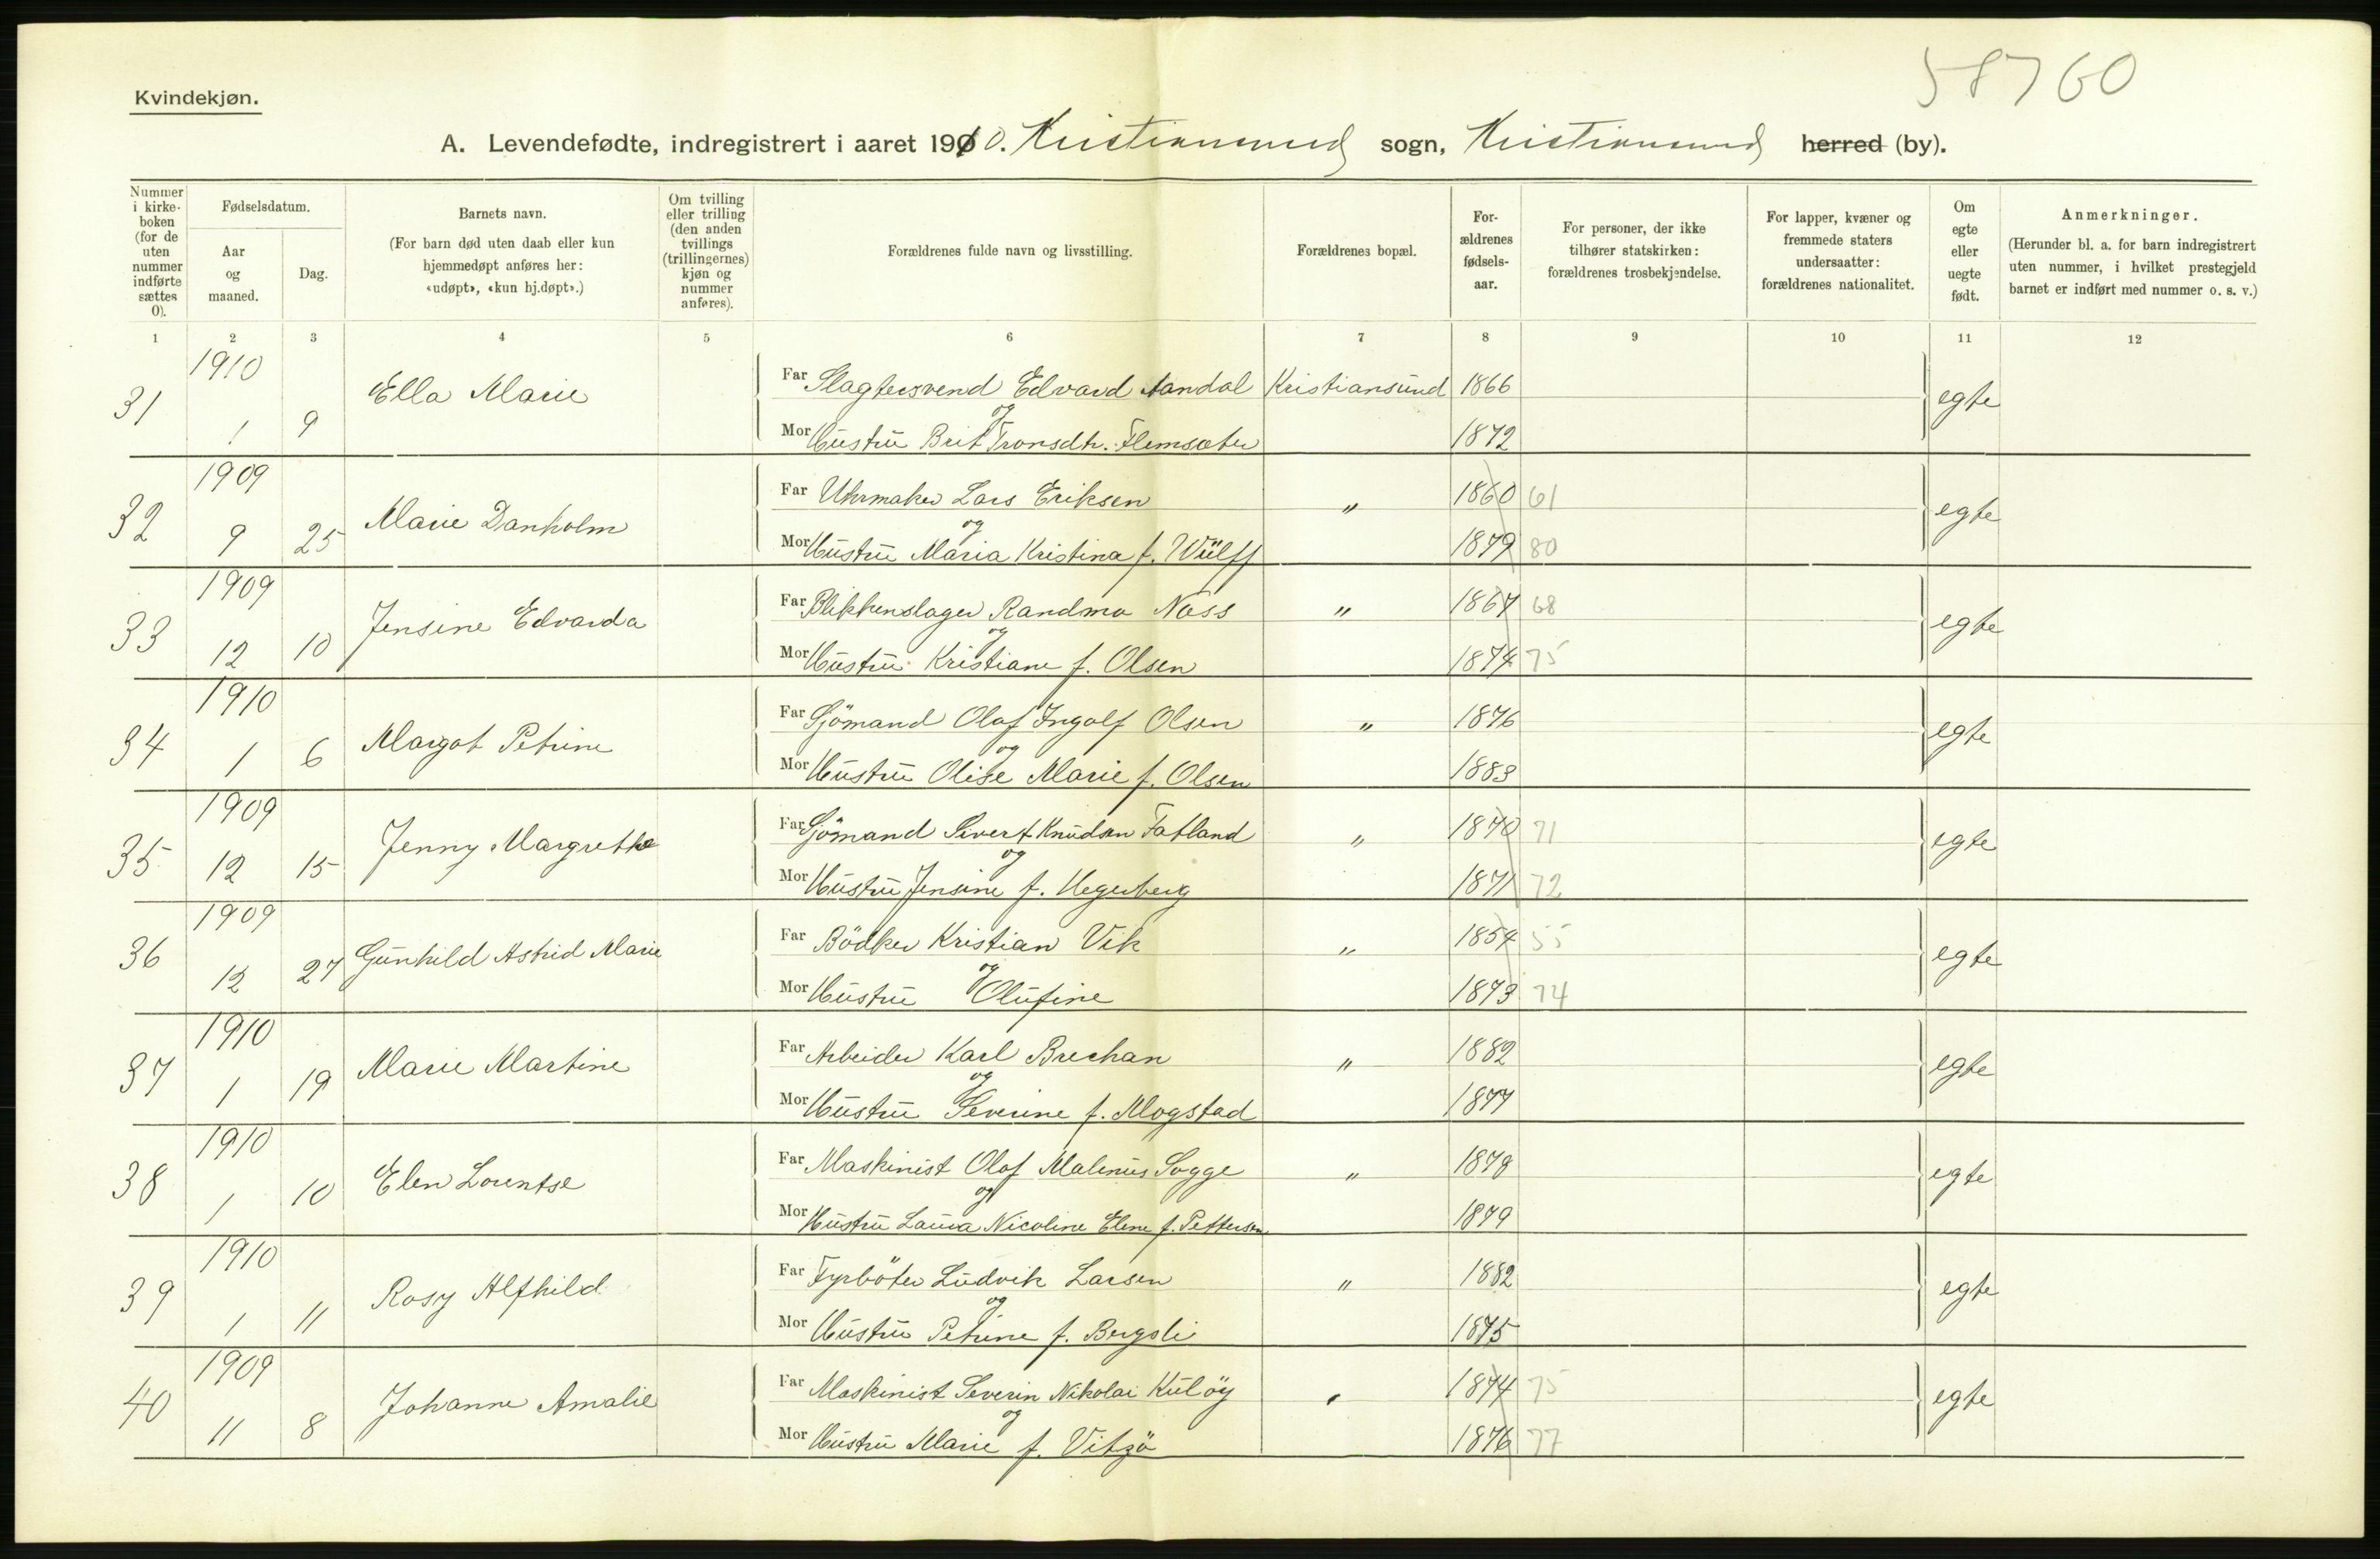 58760
Kvindekjøn.
A. Levendefødte, indregistrert i aaret 1910. Kristiansund sogn, Kristiansund herred (by).
Nummer i kirkeboken (for de uten nummer indførte sættes 0).
Fødselsdatum.
Aar og maaned.
Dag.
Barnets navn.
(For barn død uten daab eller kun hjemmedøpt anføres her: «udøpt», «kun hj.døpt».)
Om tvilling eller trilling (den anden tvillings (trillingernes) kjøn og nummer anføres).
Forældrenes fulde navn og livsstilling.
Forældrenes bopæl.
Forældrenes fødselsaar.
For personer, der ikke tilhører statskirken: forældrenes trosbekjendelse.
For lapper, kvæner og fremmede staters undersaatter: forældrenes nationalitet.
Om egte eller uegte født.
Anmerkninger.
(Herunder bl. a. for barn indregistrert uten nummer, i hvilket prestegjeld barnet er indført med nummer o. s. v.)
1 2 3 4 5 6 7 8 9 10 11 12
31 1910 1 9 Ella Marie Far Slagtersvend Edvard Aandal Kristiansund 1866 egte
og
Mor Hustru Brit Tronsdtr. Flemsæter 1872
32 1909 9 25 Marie Danholm Far Uhrmaker Lars Eriksen " 1860 61 egte
og
Mor Hustru Maria Kristina f. Wülff 1879 80
33 1909 12 10 Jensine Edvarda Far Blikkenslager Randmo Næss " 1867 68 egte
og
Mor Hustru Kristiane f. Olsen 1874 75
34 1910 1 6 Margot Petrine Far Sjömand Olaf Ingolf Olsen " 1876 egte
og
Mor Hustru Olise Marie f. Olsen 1883
35 1909 12 15 Jenny Margrethe Far Sjömand Sivert Knudsen Fatland " 1870 71 egte
og
Mor Hustru Jensine f. Hegerberg 1871 72
36 1909 12 27 Gunhild Astrid Marie Far Bödker Kristian Vik " 1854 55 egte
og
Mor Hustru Olufine 1873 74
37 1910 1 19 Marie Martine Far Arbeider Karl Brechan " 1882 egte
og
Mor Hustru Severine f. Mogstad 1877
38 1910 1 10 Elen Lorentse Far Maskinist Olaf Malenus Sogge " 1878 egte
og
Mor Hustru Laura Nicoline Elene f. Pettersen 1879
39 1910 1 11 Rosy Alfhild Far Fyrböter Ludvik Larsen " 1882 egte
og
Mor Hustru Petrine f. Bergsli 1875
40 1909 11 8 Johanne Amalie Far Maskinist Severin Nikolai Kulöy " 1874 75 egte
og
Mor Hustru Marie f. Vitsö 1876 77